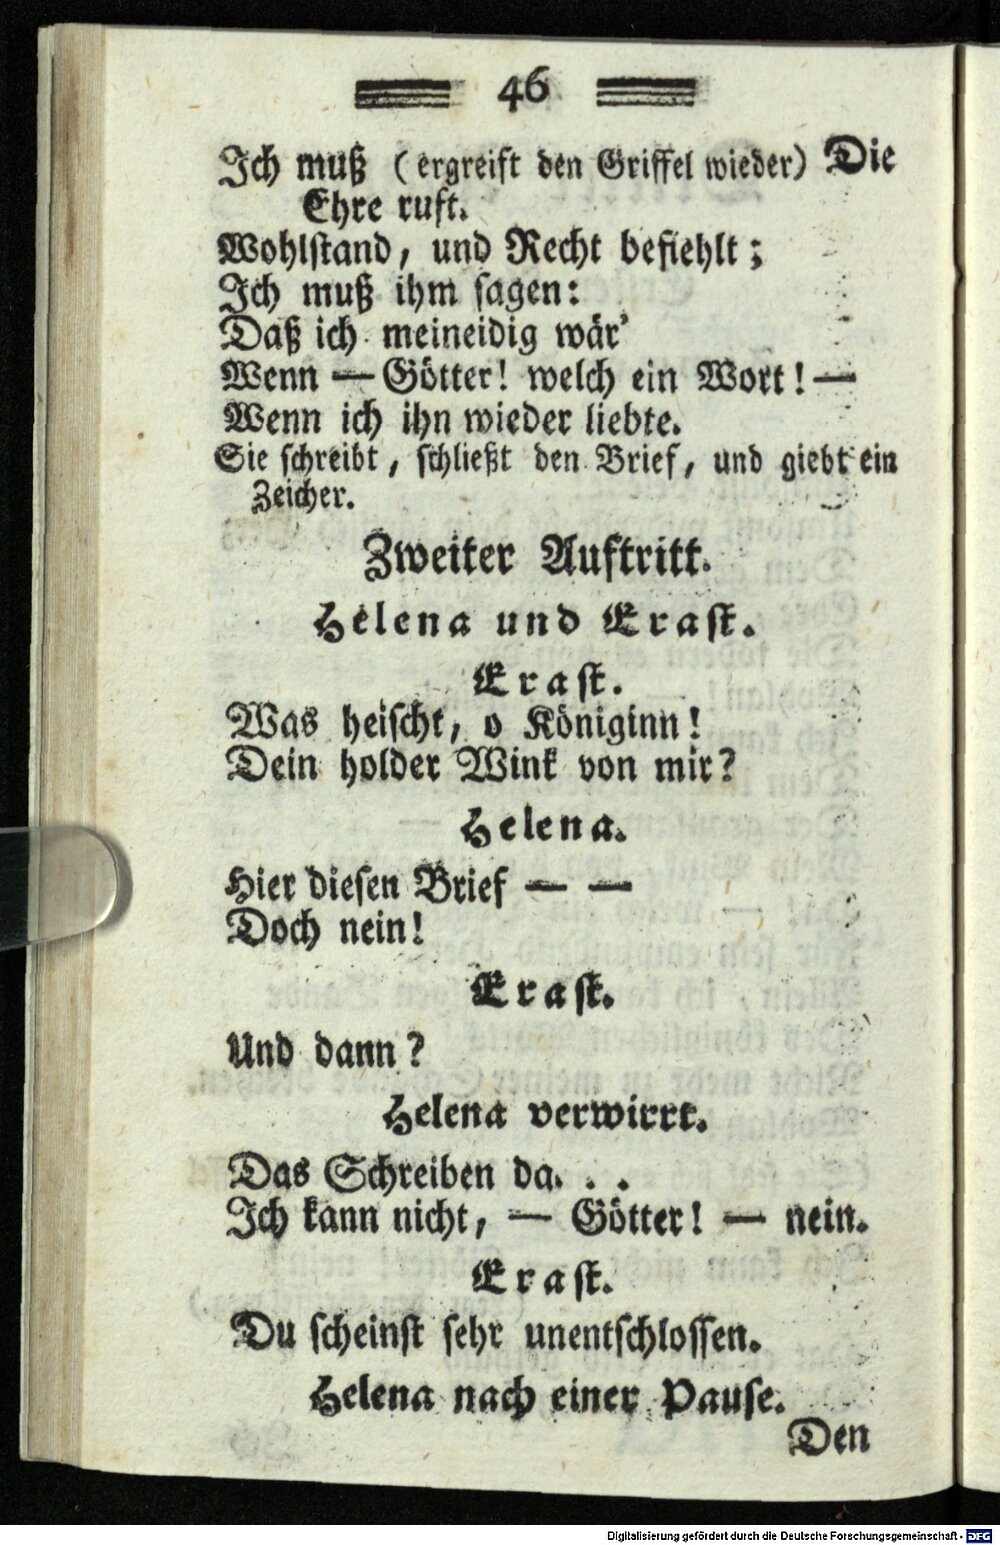 46
Ich muß (ergreift den Griffel wieder) Die
Ehre ruft.
Wohlstand, und Recht befiehlt;
Ich muß ihm sagen:
Daß ich meineidig wär'
Wenn — Götter! welch ein Wort! —
Wenn ich ihn wieder liebte.
Sie schreibt, schließt den Brief, und giebt ein
Zeicher.
Zweiter Auftritt.
Helena und Erast.
Erast.
Was heischt, o Königinn!
Dein holder Wink von mir?
Helena.
Hier diesen Brief — —
Doch nein!
Erast.
Und dann?
Helena verwirrt.
Das Schreiben da. . .
Ich kann nicht, — Götter! — nein.
Erast.
Du scheinst sehr unentschlossen.
Helena nach einer Pause.
Den
Digitalisierung gefördert durch die Deutsche Forschungsgemeinschaft - DFG